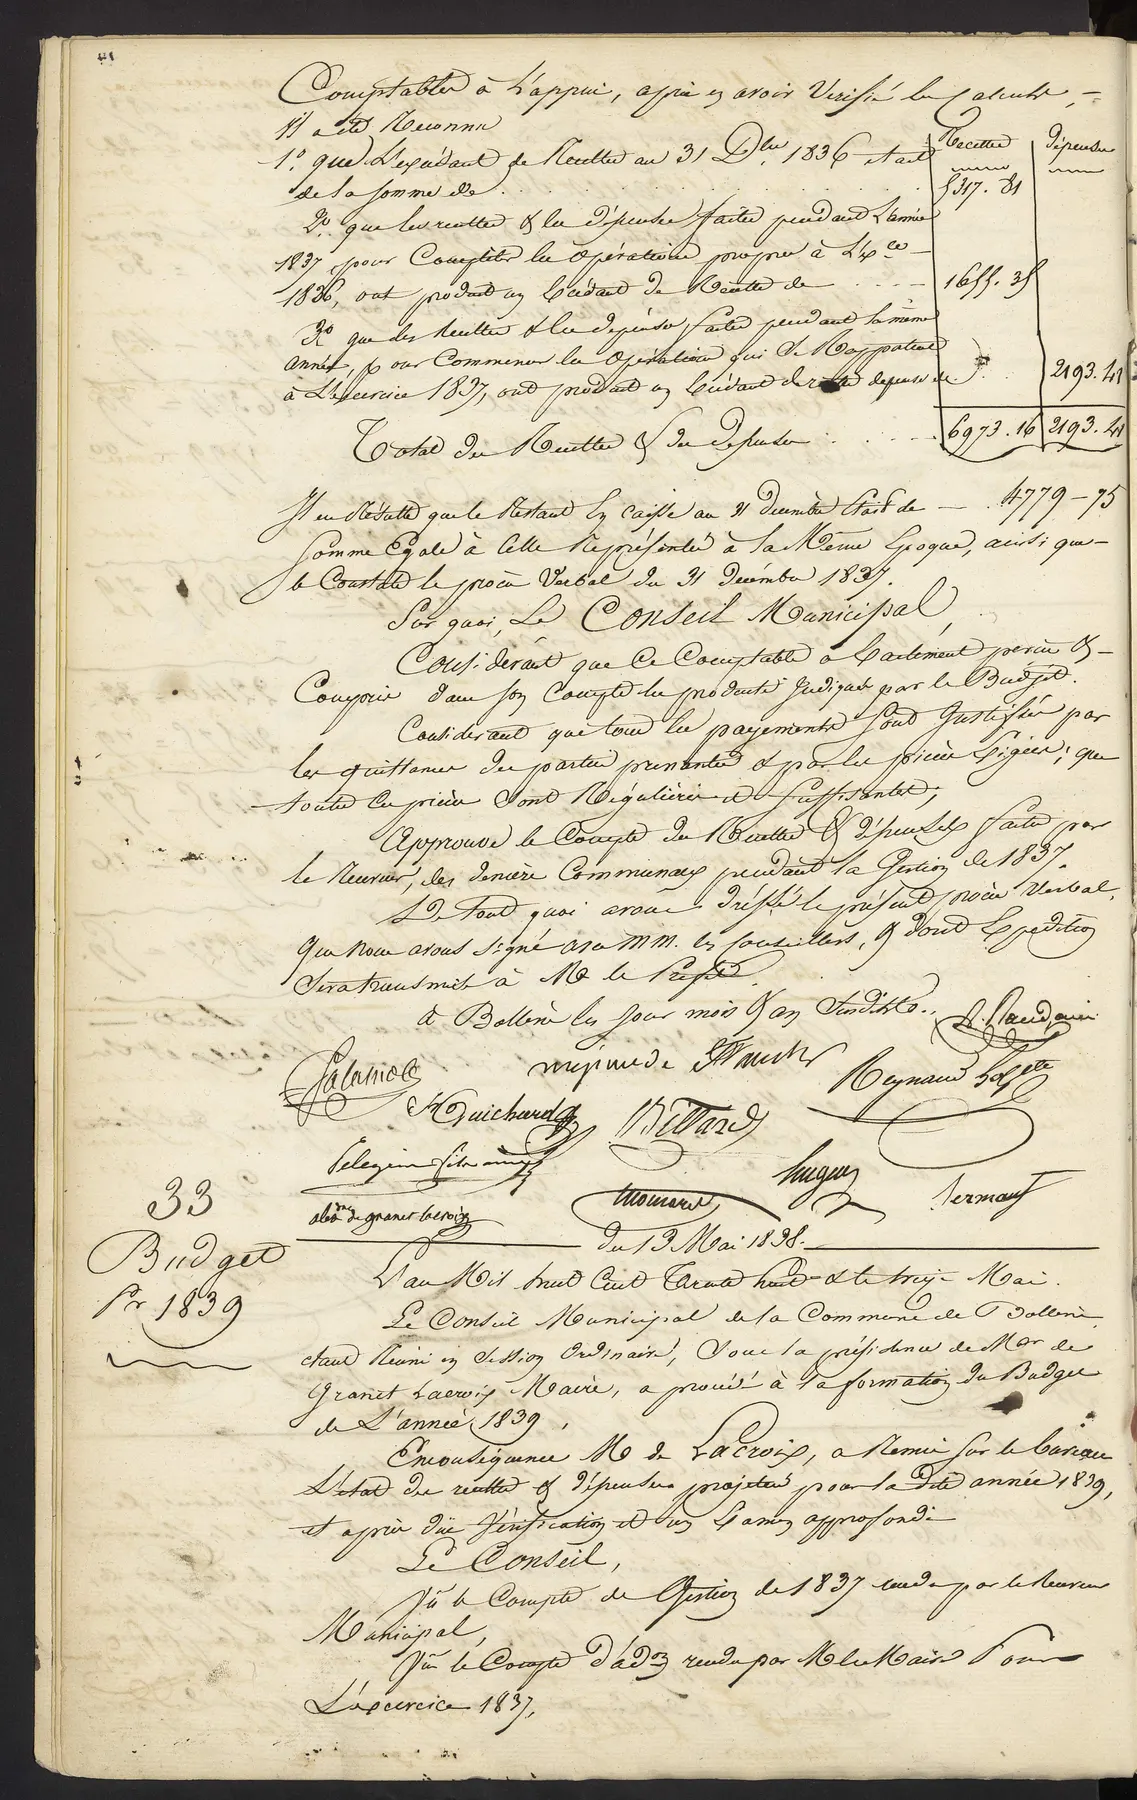 Comptables à l'appui, après en avoir Verifié les Calculs, —
Il a été Reconnu
Recettes Dépenses
1.° que L'excédant de Recettes au 31 Dbre. 1836 était
de la somme de . . . . . 5317. 81
2.° que les recettes & les dépenses faites pendant L'année
1837 pour Compléter les Opérations propres à L'Exce
1836, ont produit un Excédant de Recettes de . . . 1655. 35
3.° que les Recettes & les dépenses faites pendant la même
année, pour Commencer les Opérations qui Se Rapportent
à L'Exercice 1837, ont produit un Excédant de dépense de . . 2193. 41
Total des Recettes & des dépenses . . . . 6973. 16 2193. 41
Il en Résulte que le Restant En caisse au 31 Décembre était de — 4779 - 75
Somme Egale à Celle Représentée à la Même Epoque, ainsi que
le Constate le procès Verbal du 31 décembre 1837.
Sur quoi, Le Conseil Municipal,
Considérant que Ce Comptable a Exactement perçu &
Compris dans son Compte les produits Indiqués par le Budget.
Considérant que tous les payements sont Justifiés par
les quittances des parties prenantes & par les pièces Exigées; que
toutes ces pièces sont Régulières et Suffisantes;
Approuve le Compte des Recettes & dépenses faites par
le Receveur, des deniers Communaux pendant la Gestion de 1837.
De Tout quoi avons Dressé le présent procès Verbal,
que nous avons signé avec MM. les Conseillers, & dont Expédition
Sera transmise à Mr le Préfet.
à Bollène les jour mois & an Susdits.
Guichard
Billard
Reynaud
hugues
alexdre de granet lacroix
du 13 Mai 1838.
33
Budget
Pr 1839
L'an Mil huit Cent Trente huit & le treize Mai.
Le Conseil Municipal de la Commune de Bollène
étant Réuni en Session Ordinaire, Sous la présidence de Mr de
Granet Lacroix Maire, a procédé à la formation du Budget
de L'année 1839,
En conséquence Mr de LaCroix, a Remis Sur le bureau
L'état des recettes & dépenses projetées pour la dite année 1839,
et après düe Vérification et un Examen approfondi
Le Conseil,
Vû le Compte de Gestion de 1837 rendu par le Receveur
Municipal,
Vû le Compte D'adon rendu par Mr le Maire Pour
L'exercice 1837,